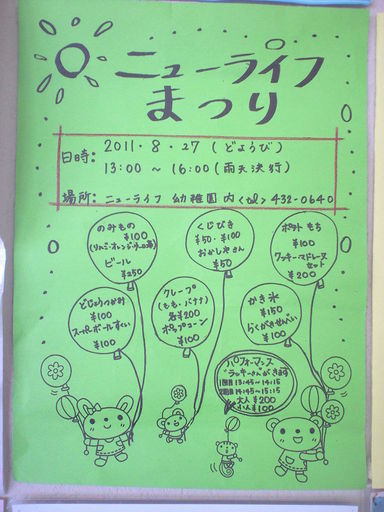 ニューライフ
まつり
日時: 2011・8・27(どようび)
13:00 ~ 16:00(雨天決行)
場所: ニューライフ 幼稚園内 (tel) 432-0640
のみもの
¥100
ビール
¥250
くじびき
¥50・¥100
おかしやさん
¥50
ポテトもち
¥100
クッキーマドレーヌ
セット
¥200
どじょうつかみ
¥100
スーパーボールすくい
¥100
クレープ
(もも・バナナ)
各¥200
ポップコーン
¥100
かき氷
¥150
らくがきせんべい
¥100
パフォーマンス
ラッキーさんがきます
1回目 13:45~14:15
2回目 14:45~15:15
大人 ¥200
小人 ¥100